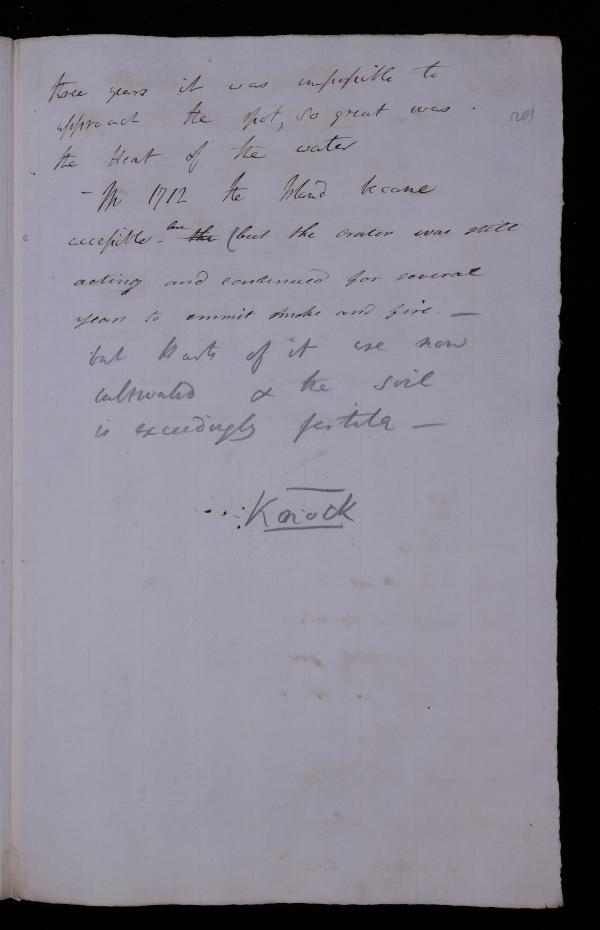 three years it was impossible to
approach the spot, so great was
201
the Heat of the water
– In 1712 the Island became
accessible – but the (but the crater was still
acting and continued for several
years to emmit smoke and fire. –
but Parts of it are now
cultivated & the soil
is exceedingly fertile –
Knock